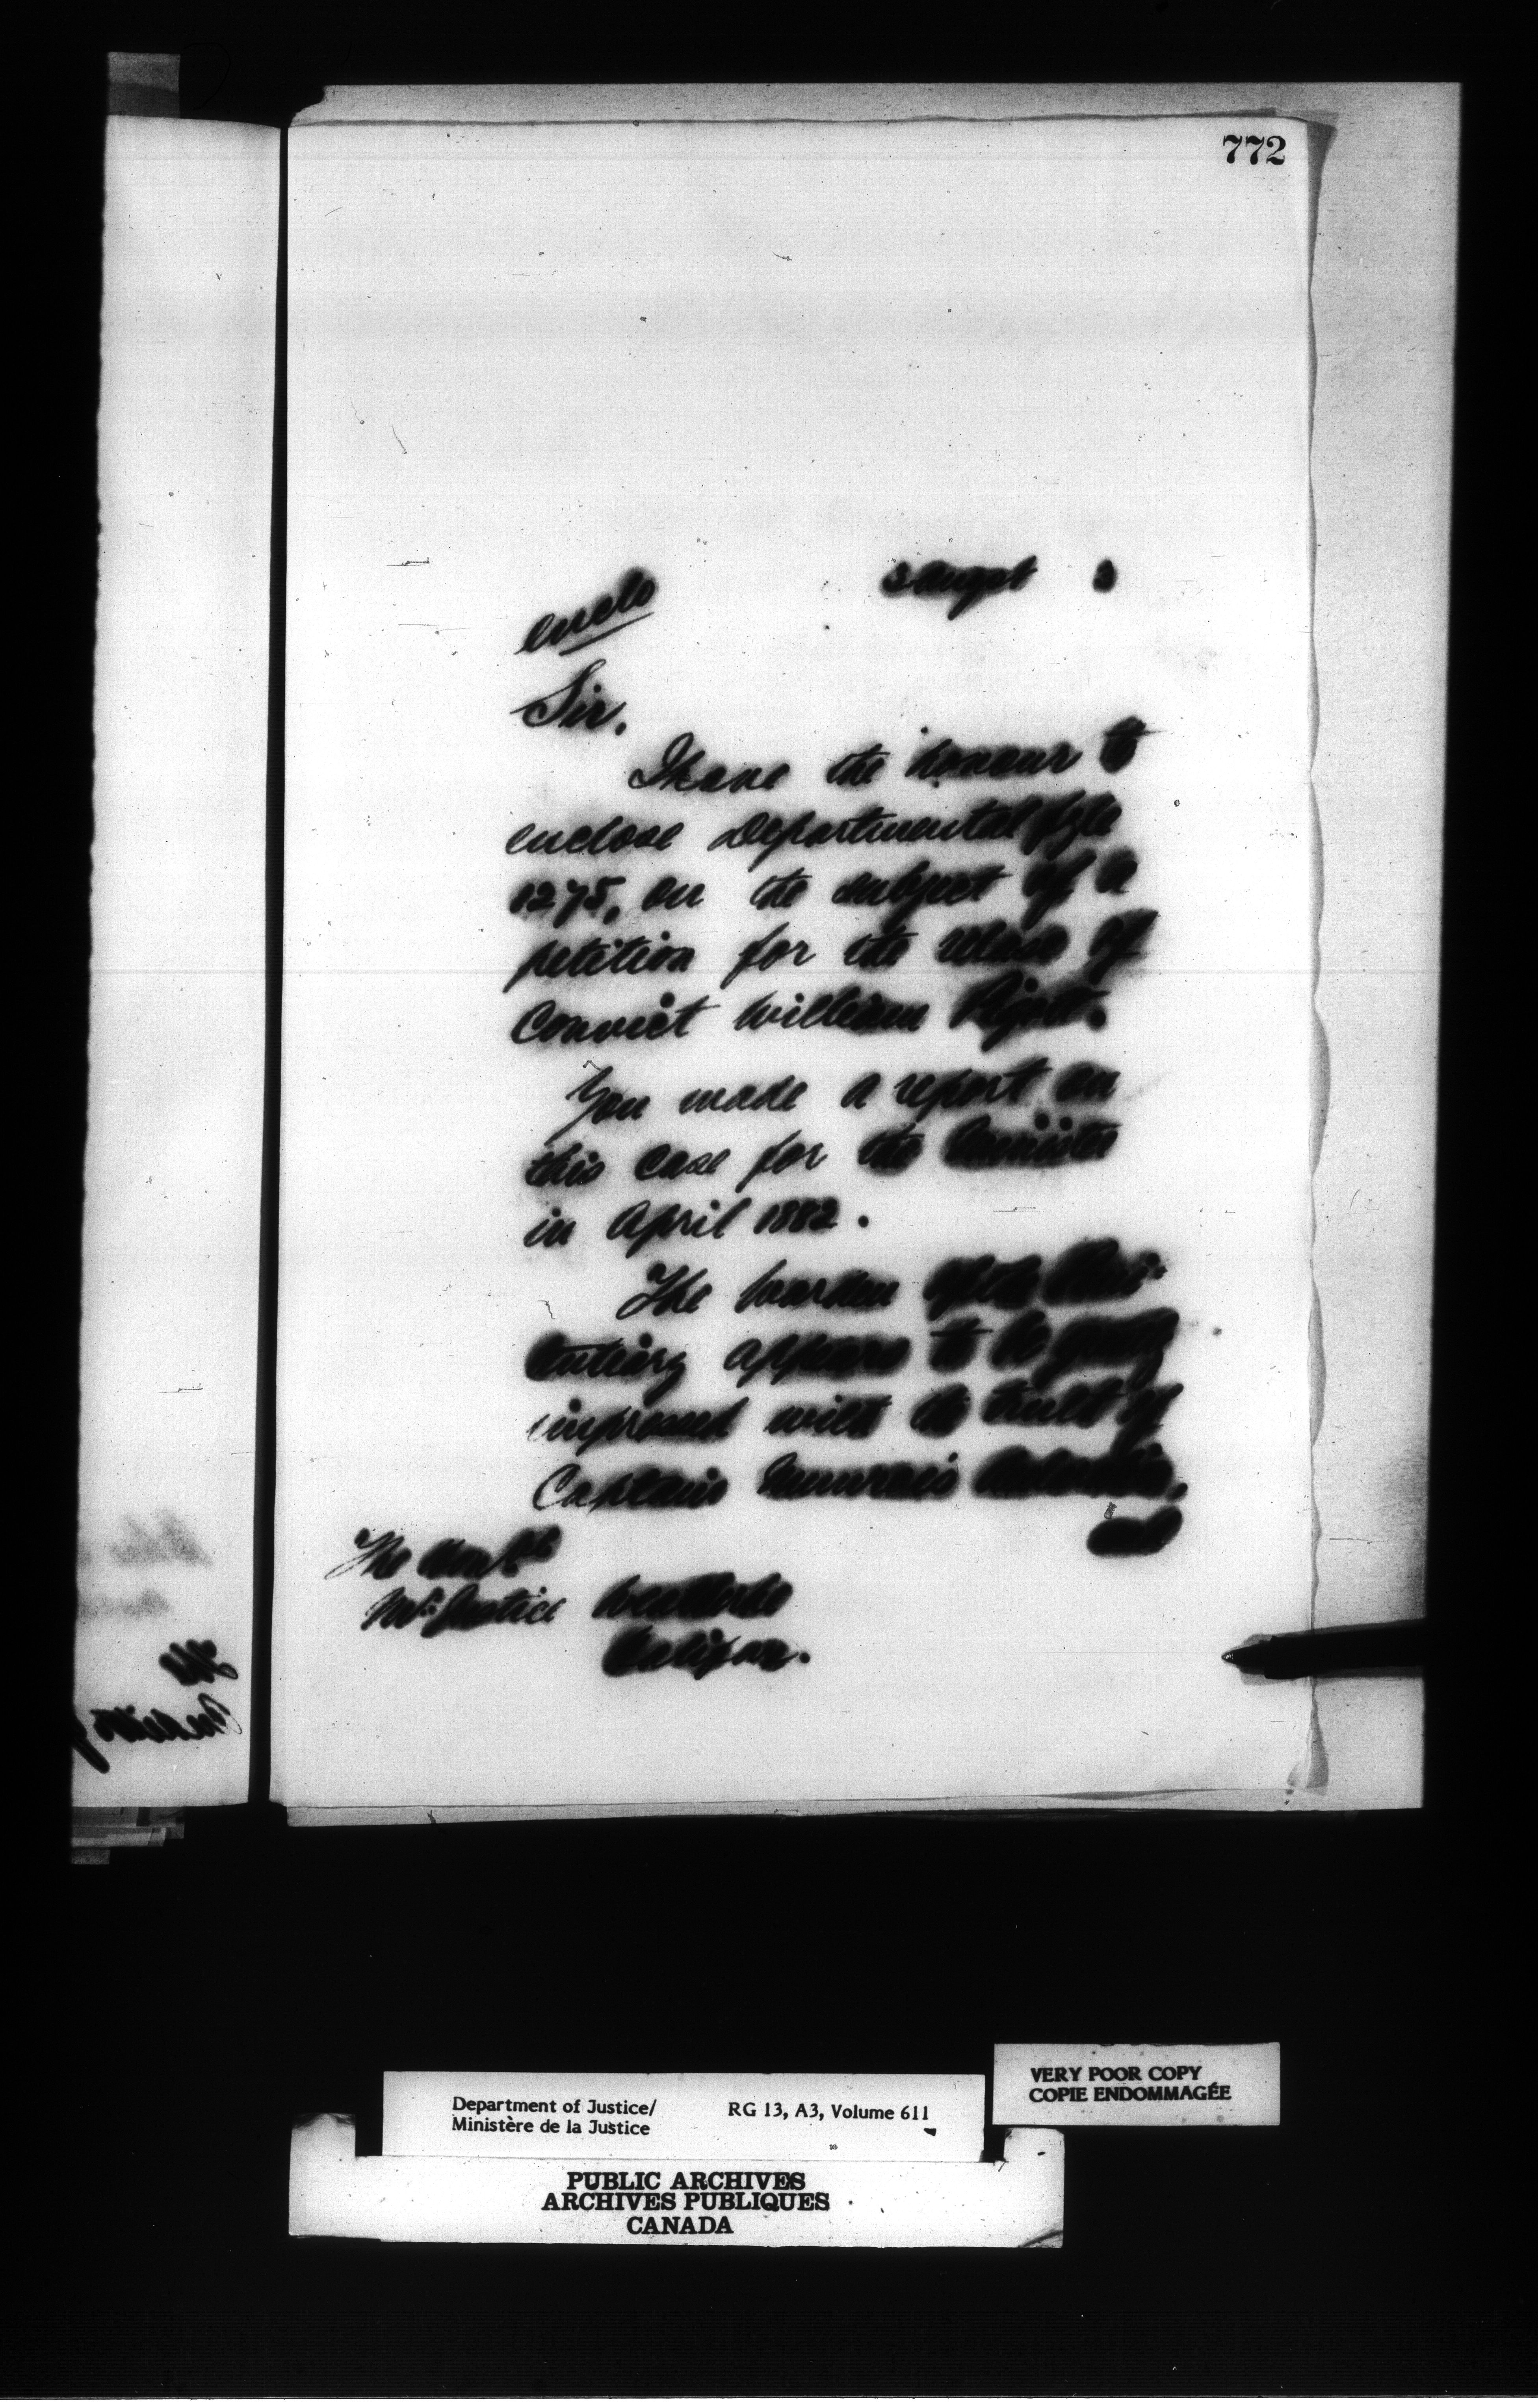 772
3 Augst 3
encls
Sir,
I have the honour to
enclose Departmental fyle
1275, on the subject of a
petition for the release of
Convict William
You made a report on
this case for the Minister
in April 1882.
The Warden of the Peni-
tentiary appears to be greatly
impressed with the truth of
Captain
and
The Honble
Mr. Justice Weatherbe
Halifax.
Department of Justice/
Ministère de la Justice
RG 13, A3, Volume 611
VERY POOR COPY
COPIE ENDOMMAGÉE
PUBLIC ARCHIVES
ARCHIVES PUBLIQUES
CANADA